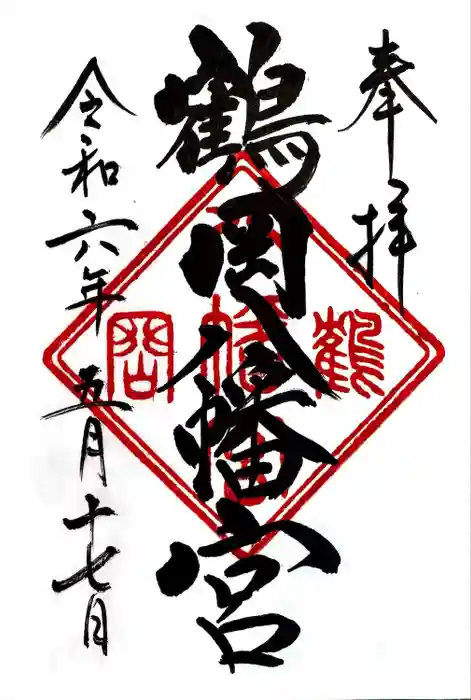 奉拝
鶴岡八幡宮
令和六年五月十七日
鶴
岡